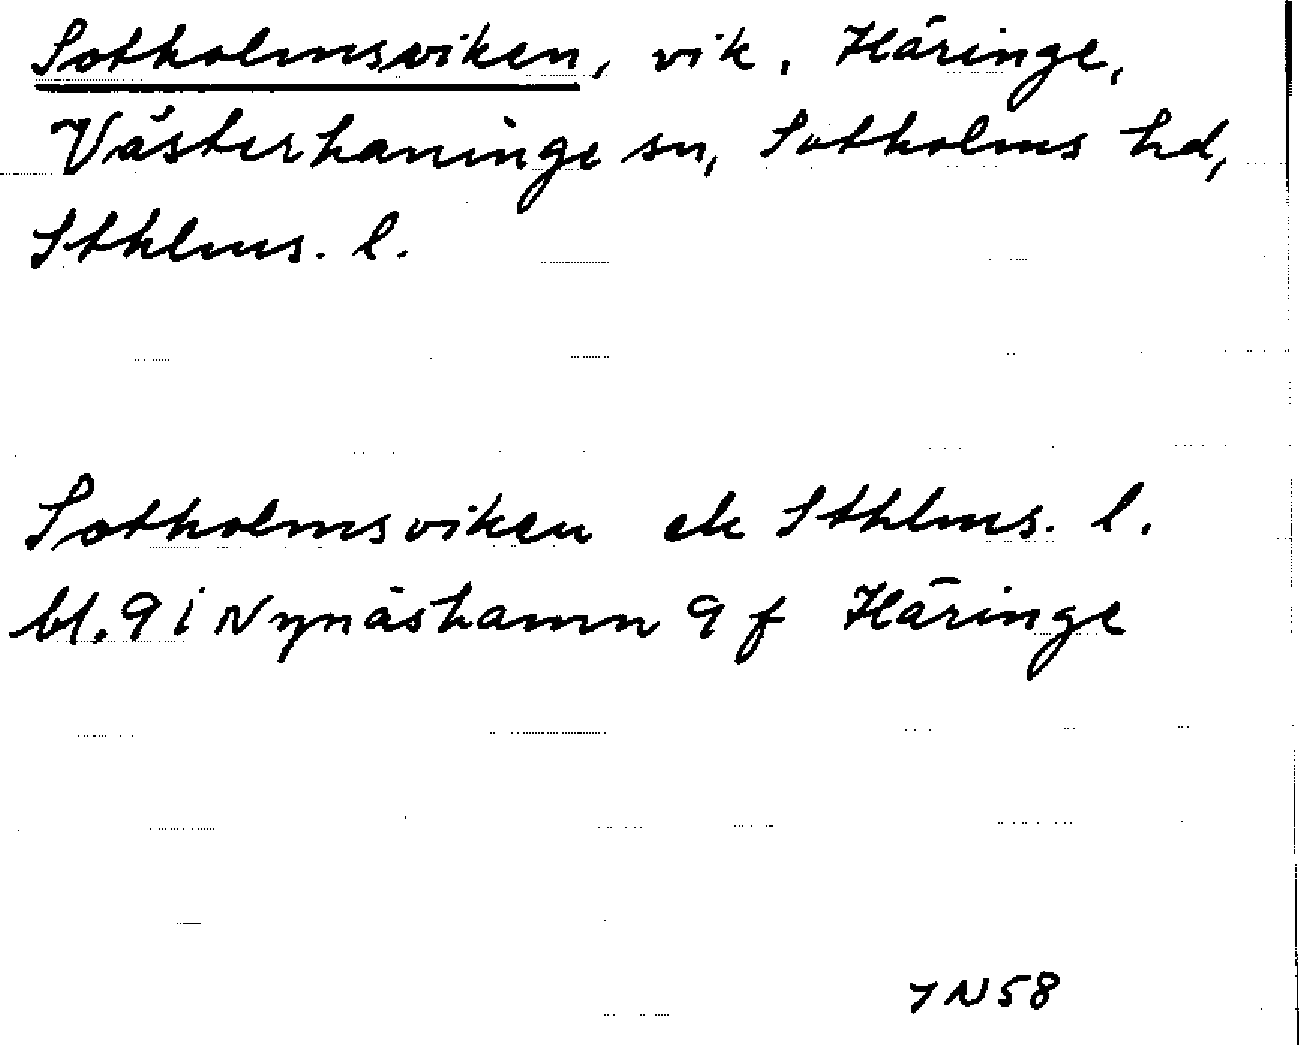 Sotholmsviken, vik, Häringe,
Västerhaninge sn, Sotholms hd,
Sthlms. l.
Sotholmsviken ek Sthlms. l.
bl. 9 i Nynäshamn 9 f Häringe
YN58